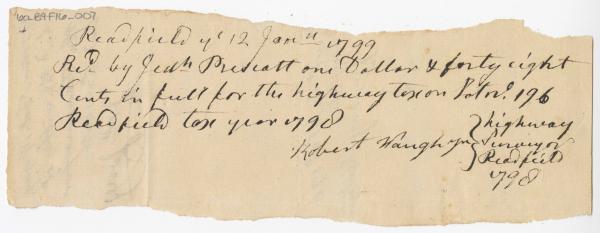 602.B9.F16_007
Readfield ye 12 Janll 1799
Recd by Jedh Prescatt one Dollar & forty eight
Cents in full for the highway tax on Lot no. 196
Readfield tax year 1798
Robert Waugh Jnr } highway
Surveyor
Readfield
1798